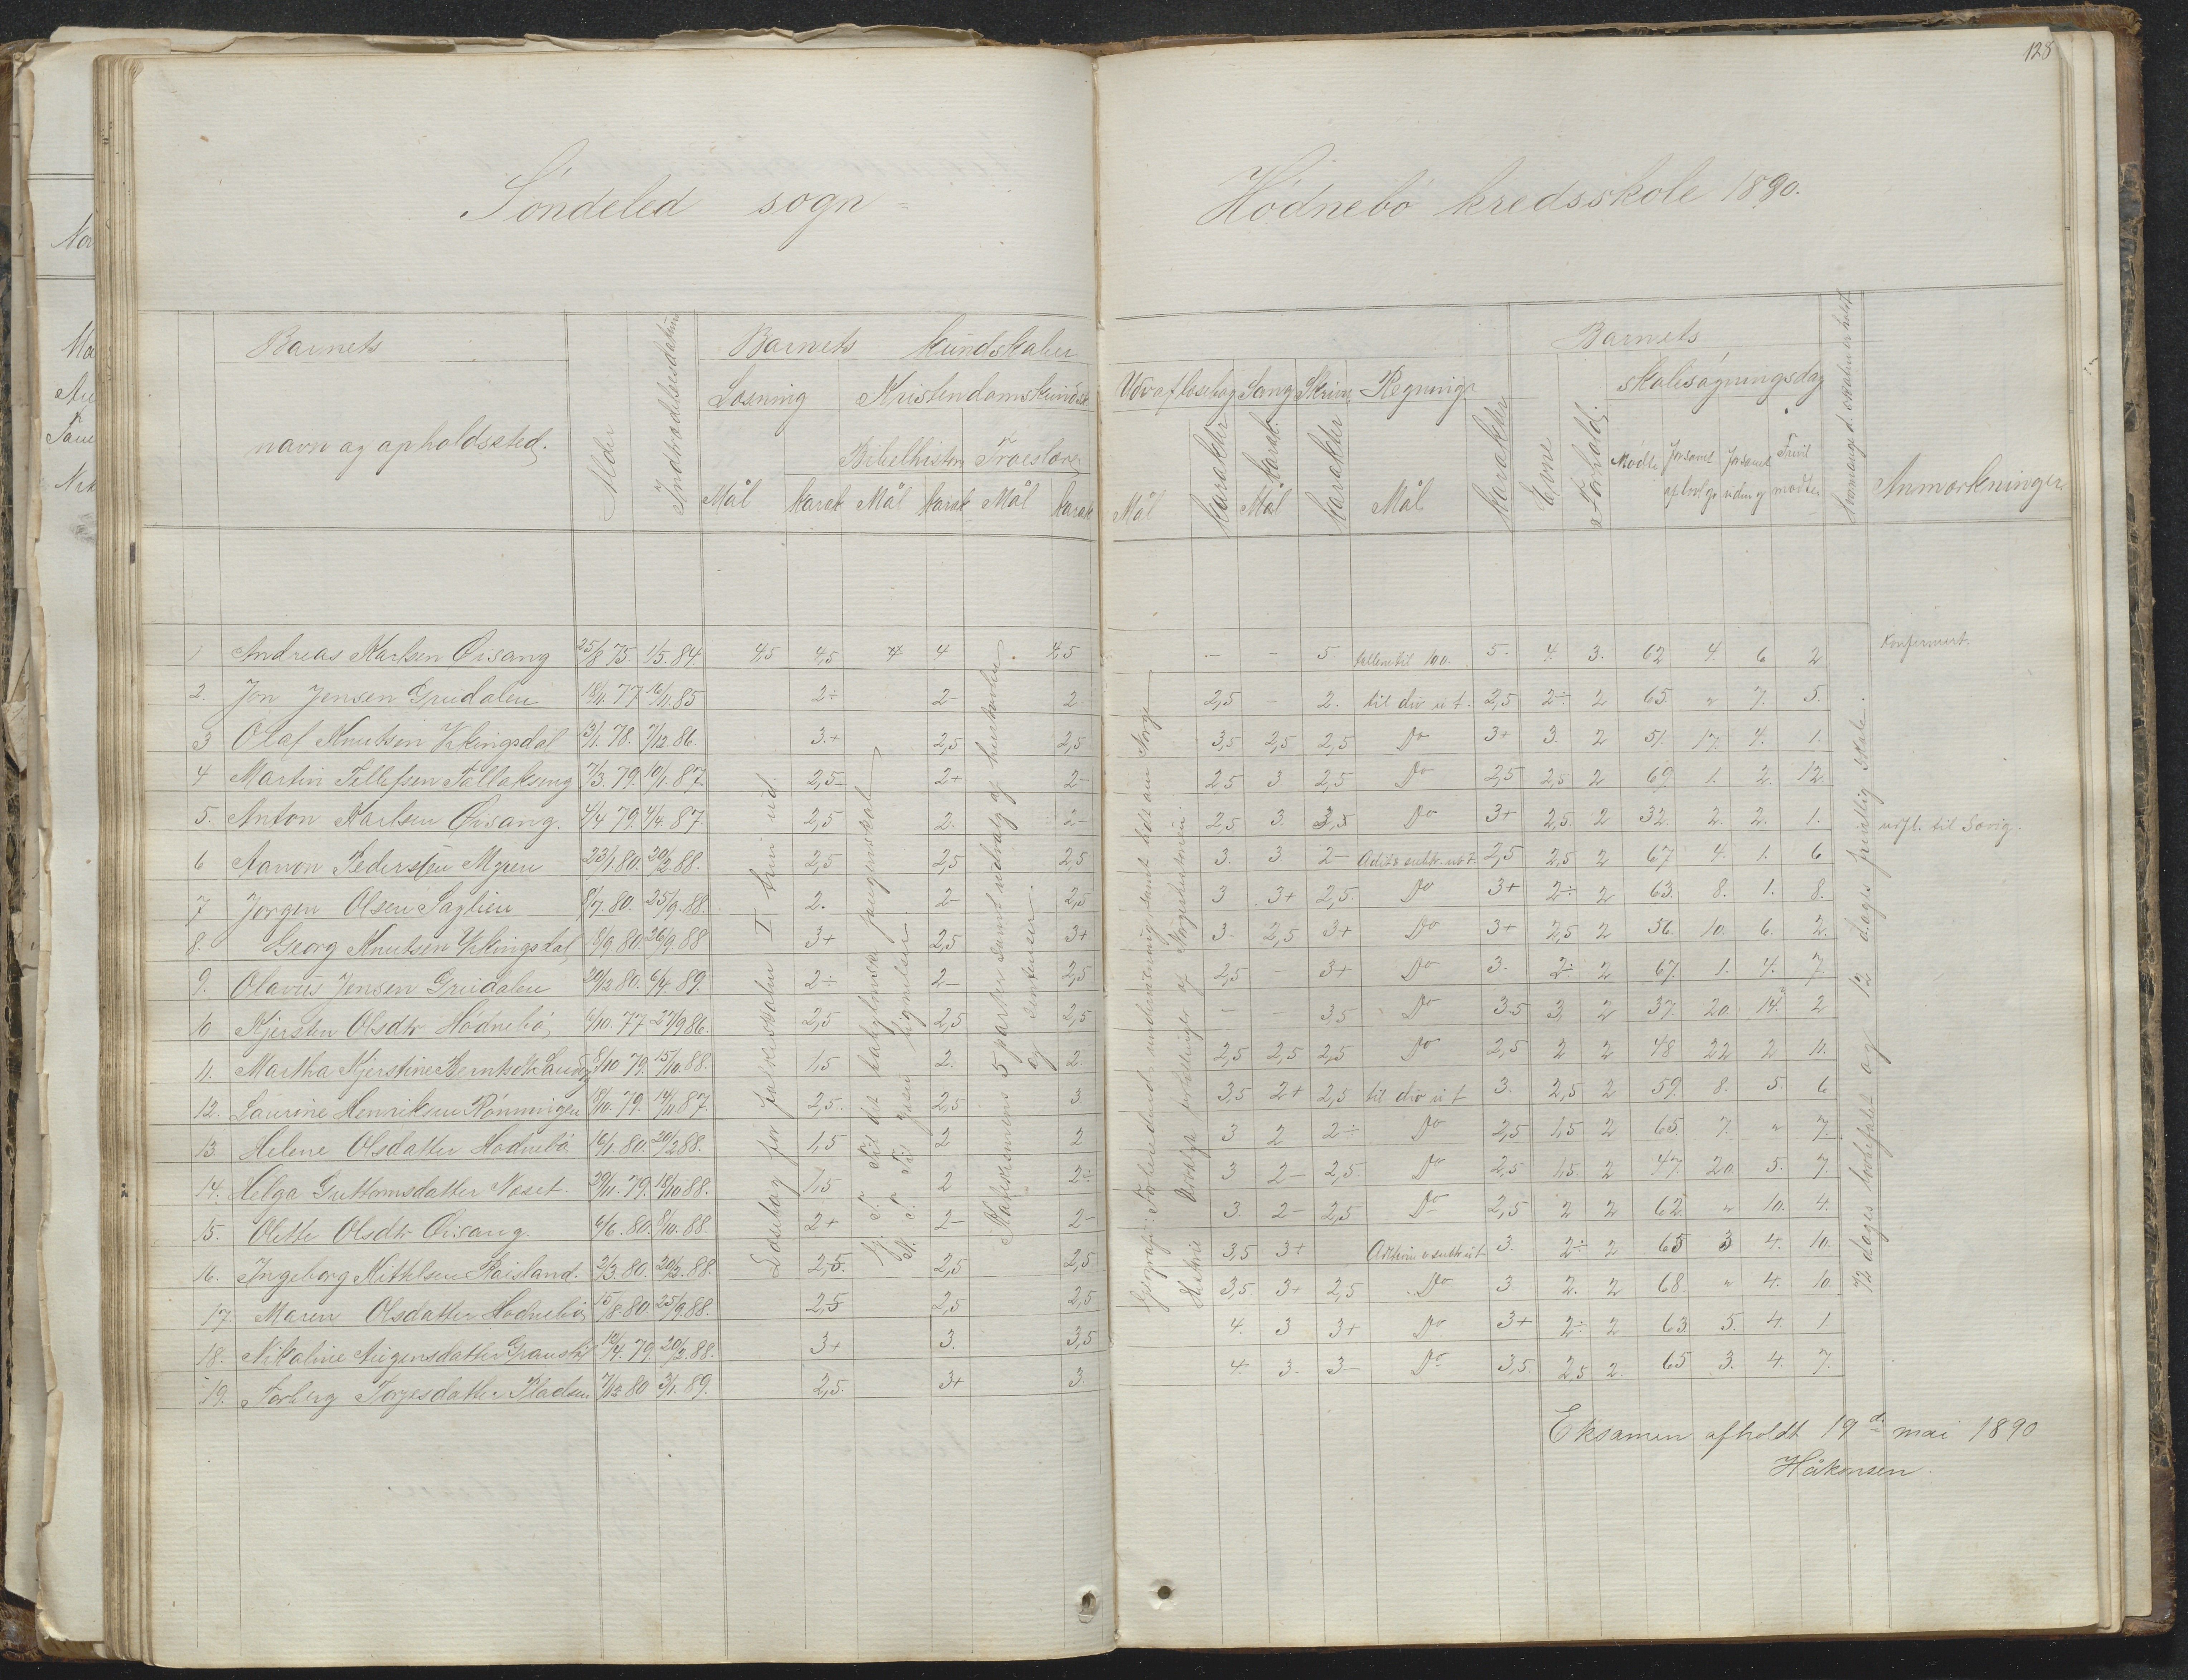 128
Söndeled sogn
Hödnebö kredsskole 1890.
Barnets
navn og opholdssted.
Alder
Indtrædelsesdatum
Barnets kundskaber
Læsning Kristendomskundsk
Bibelhistorie Troeslære
Mål karak Mål karak Mål karak
Udv af læsebog Sang Skrivn Regning
Mål karakter Mål karak. karakter Mål karakter
Evne
Forhold.
Barnets
skolesøgningsdag
Mødte Forsømt af lovl gr Forsømt uden gr Frivil mødte
Anmærkninger
1 Andreas Karlsen Öisang 25/8 75. 1/5. 84 4,5 4,5 4 4 4,5 - - 5. tallene til 100. 5. 4. 3. 62 4. 6 2 Konfirmert.
2. Jon Jensen Grudalen 18/11. 77 16/11. 85 2÷ 2- 2 2,5 - 2. til div u t. 2,5 2÷ 2 65. " 7. 5.
3 Olaf Knutsen Vikingsdal 3/1. 78. 7/12 86. 3.+ 2,5 2,5 3,5 2,5 2,5 Do 3+ 3. 2 51. 17. 4. 1.
4 Martin Tellefsen 7/3. 79. 10/1. 87. 2,5 2+ 2- 2,5 3 2,5 Do 2,5 2,5 2 69. 1. 2. 12.
5. Anton Karlsen Öisang. 4/4 79. 4/4. 87. 2,5 2. 2- 2,5 3. 3,5 Do 3+ 2,5. 2 32. 2. 2. 1. udfl. til
6 Aanon Pedersen Myren 23/1. 80. 20/2. 88. 2,5 2,5 2,5 3. 3. 2- 2,5 2,5 2 67 4. 1. 6
7 Jorgen Olsen Saglien 8/7. 80. 25/9. 88. 2. 2- 2,5 3 3+ 2,5. Do 3+ 2÷ 2 63. 8. 1. 8.
8. Georg Knutsen Vikingsdal 8/9 80. 26/9. 88 3+ 2,5 3+ 3. 2,5 3+ Do 3+ 2,5 2 56. 10. 6. 2.
9. Olavus Jensen Grudalen 20/12. 80. 6/4. 89. 2÷ 2- 2,5 2,5 - 3+ Do 3. 2÷ 2 67. 1. 4. 7.
10 Kjersten Olsdtr Hödnebö 6/10. 77 27/9 86. 2,5 2,5 2,5 - - 3,5 Do 3.5 3. 2 37. 20. 14. 2
11. Martha Kjerstine 8/10 79. 15/10. 88. 1,5 2. 2. 2,5 2,5 2,5 Do 2,5 2 2 48 22 2 11.
12. Laurine Henriksen Rönningen 18/10. 79. 14/11 87. 2,5. 2,5 3. 3,5 2+ 2,5 til div u t 3. 2,5 2 59. 8. 5. 6
13 Helene Olsdatter Hödnebö 16/1. 80. 20/2 88. 1,5 2 2 3 2 2÷ Do 2,5 1,5 2 65. 7. " 7.
14. Helga Guttormsdatter Næset 29/11. 79. 18/10 88. 1,5 2 2÷ 3 2- 2,5. Do 2,5 1,5. 2 47. 20. 5. 7.
15. Olette Olsdtr Öisang. 6/6. 80. 8/10. 88. 2+ 2- 2- 3. 2- 2,5 Do 2,5 2 2 62. " 10. 4.
16. Ingeborg Kittelsen Röisland. 2/3. 80. 20/2. 88. 2,5. 2,5 2,5 3,5 3+ 3. 2÷ 2 65 3 4. 10.
17. Maren Olsdatter Hödnebö 15/8. 80. 25/9. 88. 2,5 2,5 2,5 3,5 3+ 2,5 Do 3. 2. 2 68. " 4. 10.
18. Nikoline 12/4. 79. 20/2. 88. 3+ 3. 3,5 4. 3 3+ Do 3+ 2÷ 2 63. 5. 4. 1
19. Torberg Torjesdatter Pladsen 7/12 80 3/1. 89. 2,5. 3+ 3. 4. 3. 3- Do 3,5. 2,5 2. 65 3. 4. 7.
Læsebog for folkeskolen I trin ud.
G. T. Til det babylonske fangenskab
N. T. Til Jesu lignelser
Katekismens 5 parter samt udvalg af hustavlen
og sentenser.
Geografi: Forberedende undervisning samt lidt om Norge
Historie Udvalgte fortællinger af Norgeshistorien.
72 dages lovbefalet og 12 dages frivillig skole.
Eksamen afholdt 19d. mai 1890
Håkonsen